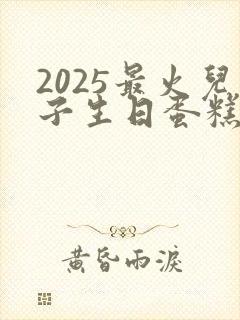 2025最火兒
子生日蛋糕
黃昏雨淚